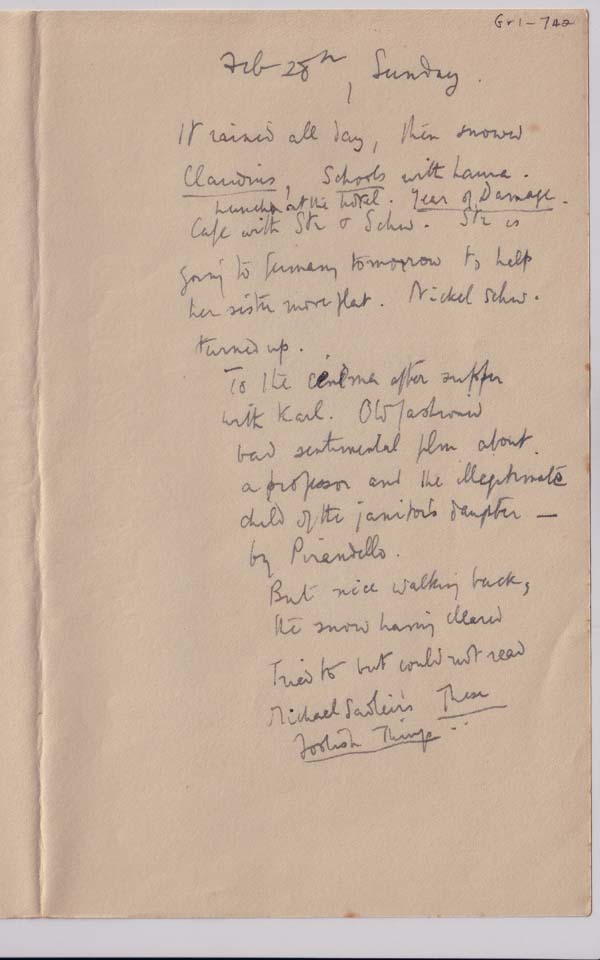 Gr1-742
Feb 28th, Sunday.
It rained all day, then snowed
Claudius, Schools with Laura.
Lunched at the hotel. Year of Damage.
Cafe with Str & Schw. Str is
going to Germany tomorrow to help
her sister move flat. Nickel Schw.
turned up.
To the cinema after supper
with Karl. Old fashioned
bad sentimental film about
a professor and the illegitimate
child of the janitor's daughter —
by Pirandello.
But nice walking back,
the snow having cleared
Tried to but could not read
Michael Sadleir's These
Foolish Things